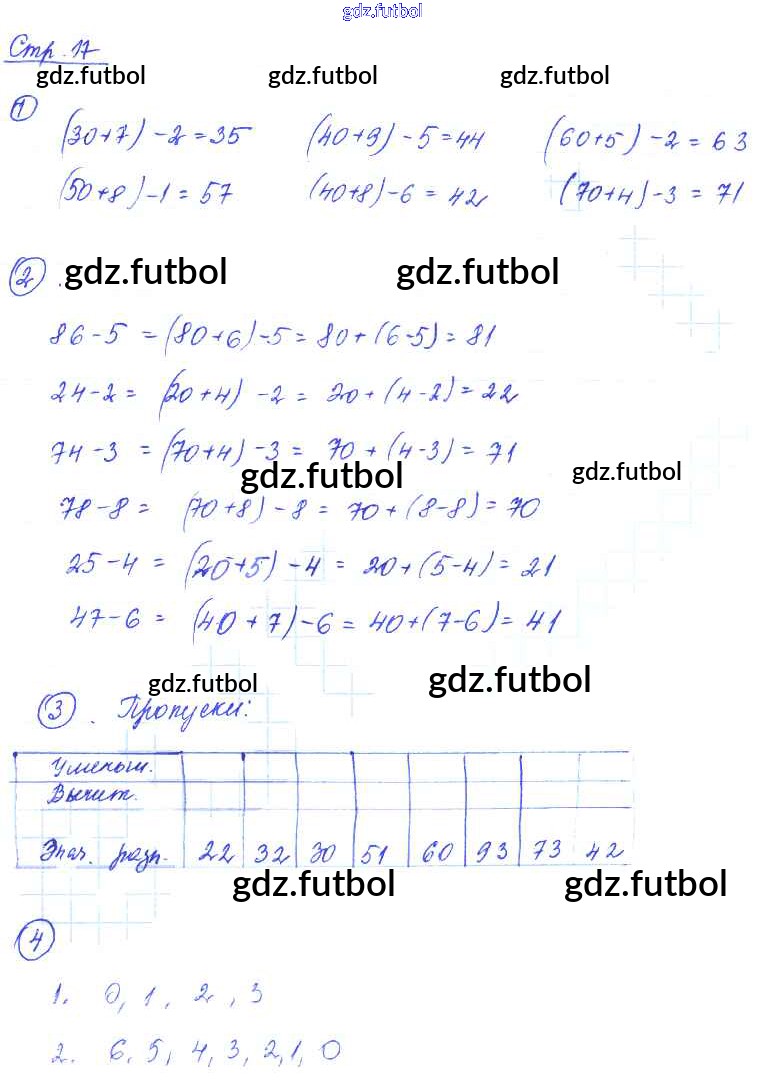 gdz.futbol
Стр. 17
gdz.futbol gdz.futbol gdz.futbol
1
(30+7)-2=35 (40+9)-5=44 (60+5)-2=63
(50+8)-1=57 (40+8)-6=42 (70+4)-3=71
2. gdz.futbol gdz.futbol
86-5 =(80+6)-5=80+(6-5)=81
24-2= (20+4)-2= 20+(4-2)=22
74-3 =(70+4)-3= 70+(4-3)=71
gdz.futbol gdz.futbol
78-8= (70+8)-8=70+(8-8)=70
25-4= (20+5)-4= 20+(5-4)=21
47-6= (40+7)-6=40+(7-6)=41
gdz.futbol gdz.futbol
3. Пропуски:
Уменьш.
Вычит.
Знач. разн. 22 32 30 51 60 93 73 42
gdz.futbol gdz.futbol
4
1. 0, 1, 2, 3
2. 6, 5, 4, 3, 2, 1, 0